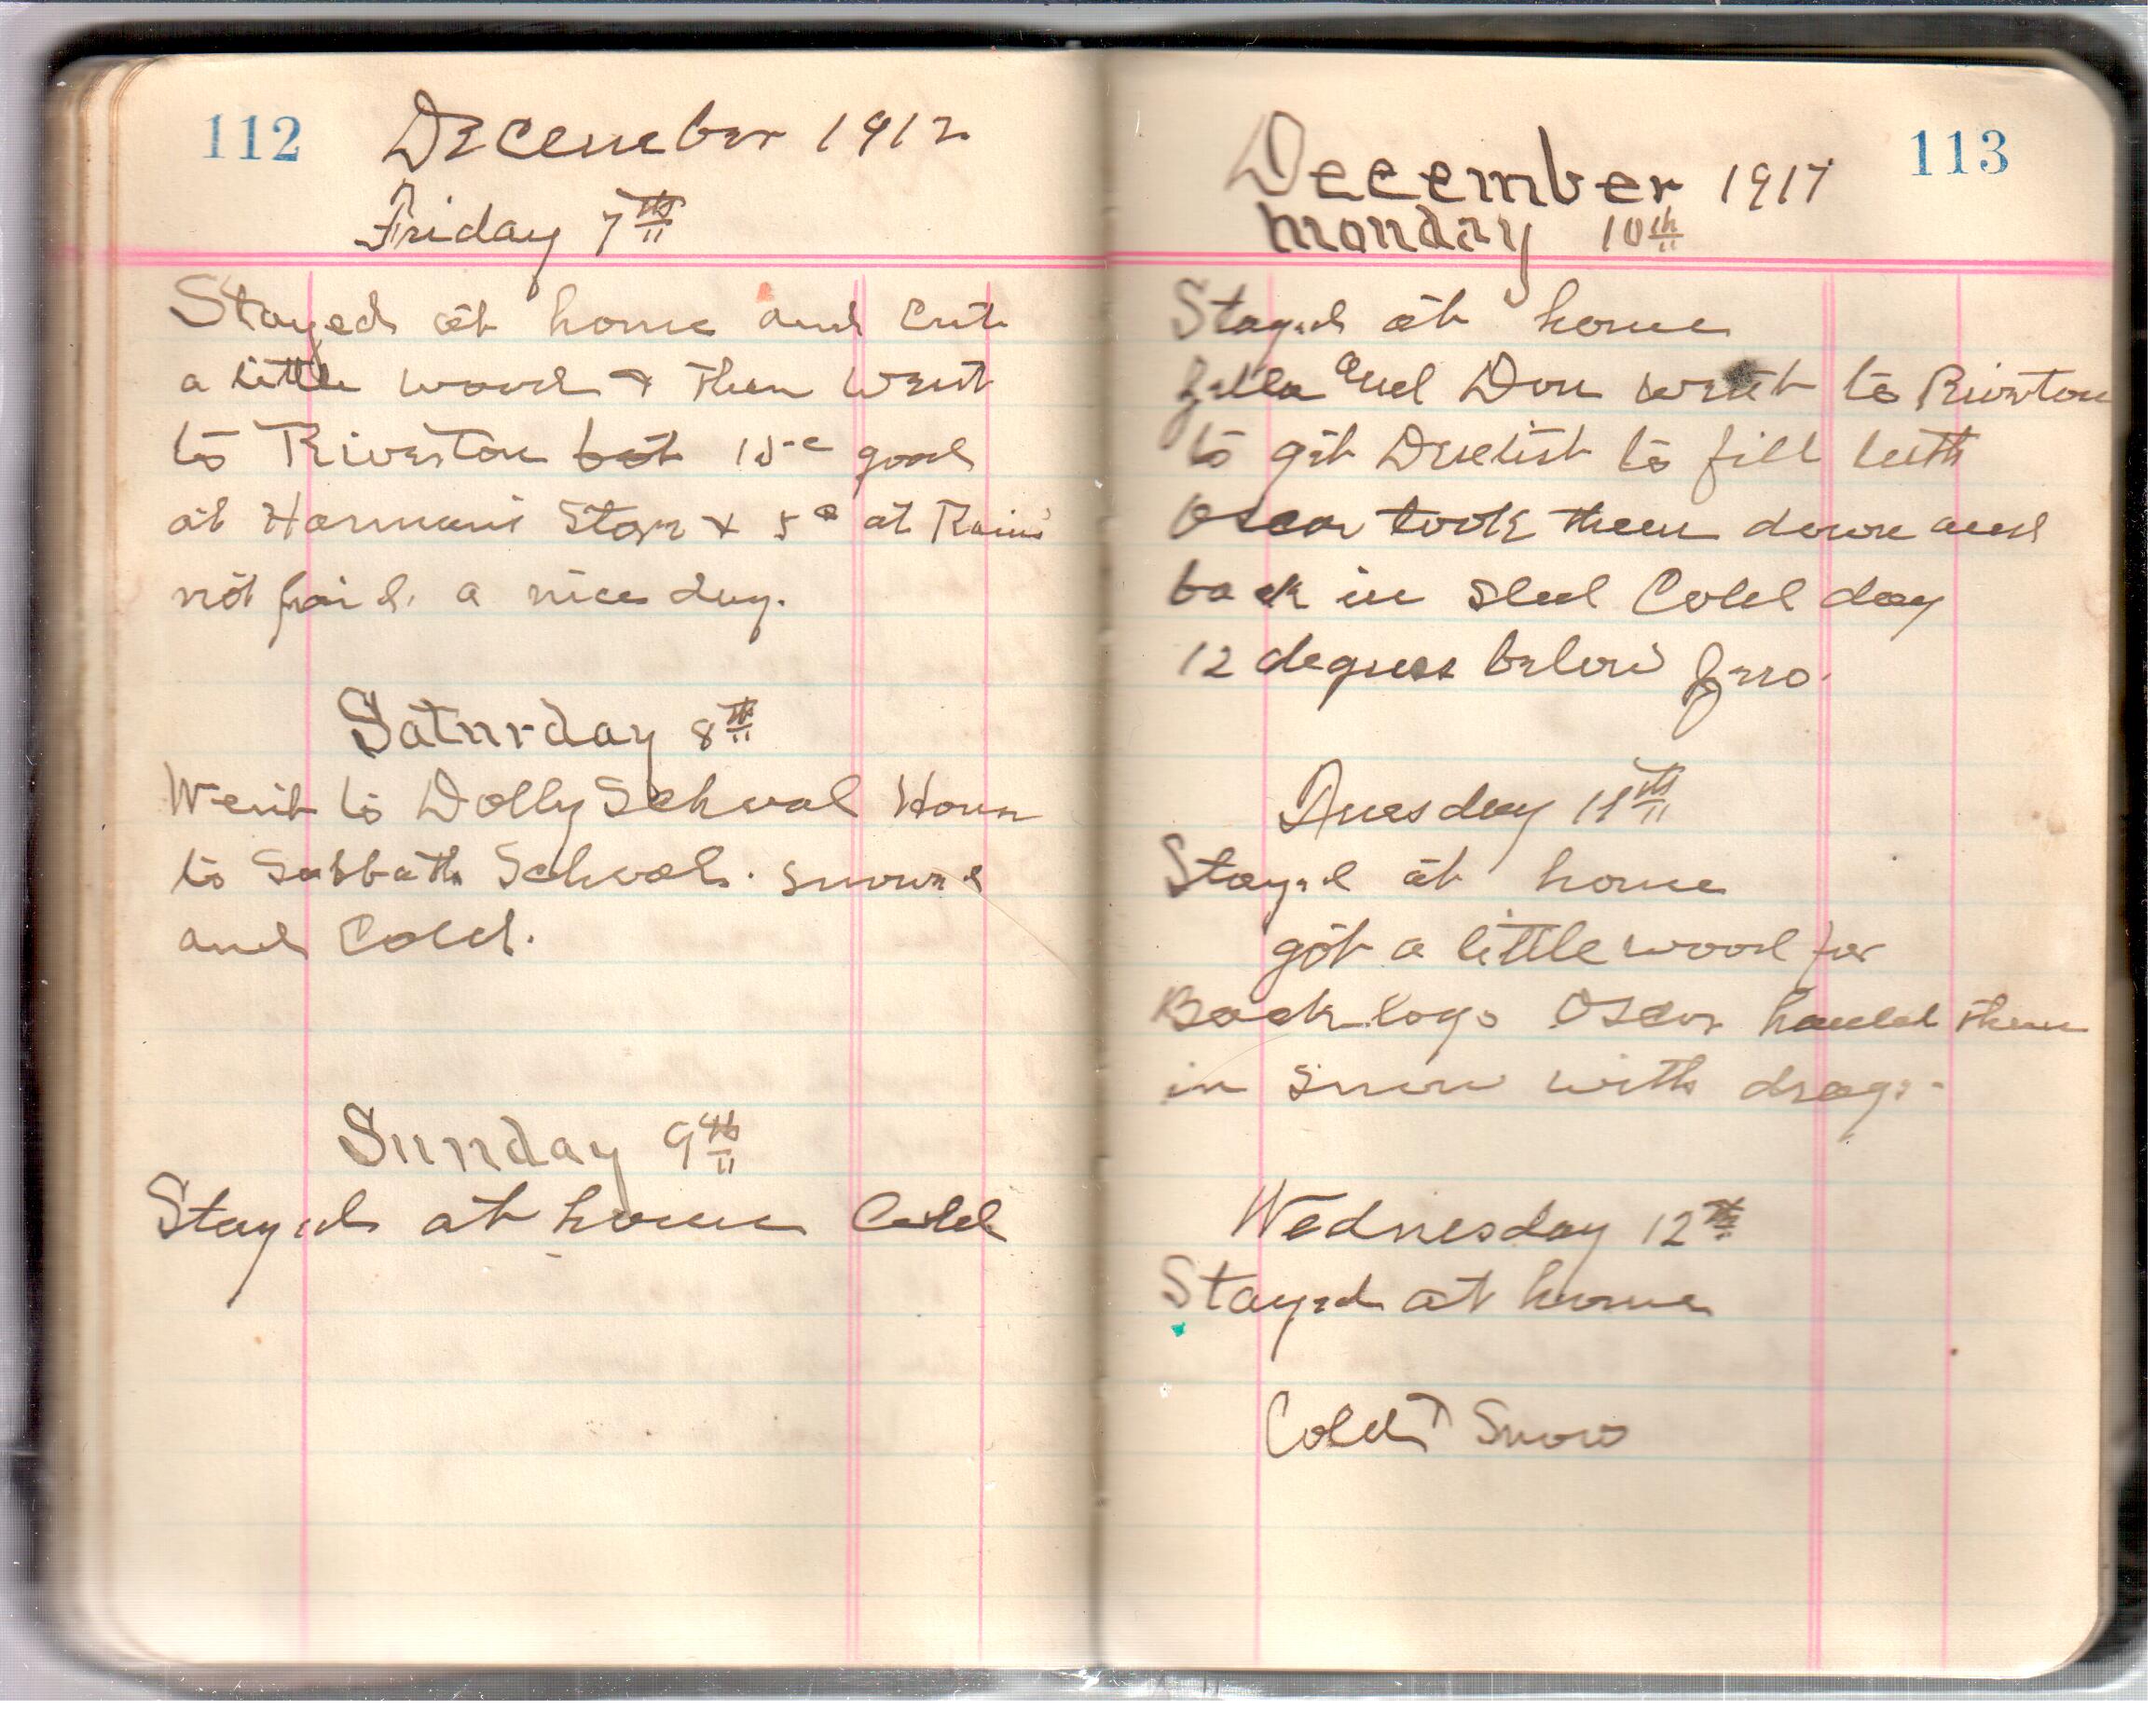 112
December 1912
Friday 7th
Stayed at home and cut
a little wood & then went
to Riverton bot 15c good
at Harmans Store & 5c at Rains
not paid. a nice day.
Saturday 8th
Went to Dolly School House
to Sabbath School. snowed
and Cold.
Sunday 9th
Stayed at home Cold
113
December 1917
monday 10th
Stayed at home
Zella and Don went to Riverton
to git Dentist to fill teeth
Oscar took them down and
back in sled Cold day
12 degrees below Zero.
Tuesday 11th
Stayed at home
got a little wood for
Back logs Oscar hauled them
in snow with drags.
Wednesday 12th
Stayed at home
Cold & Snow